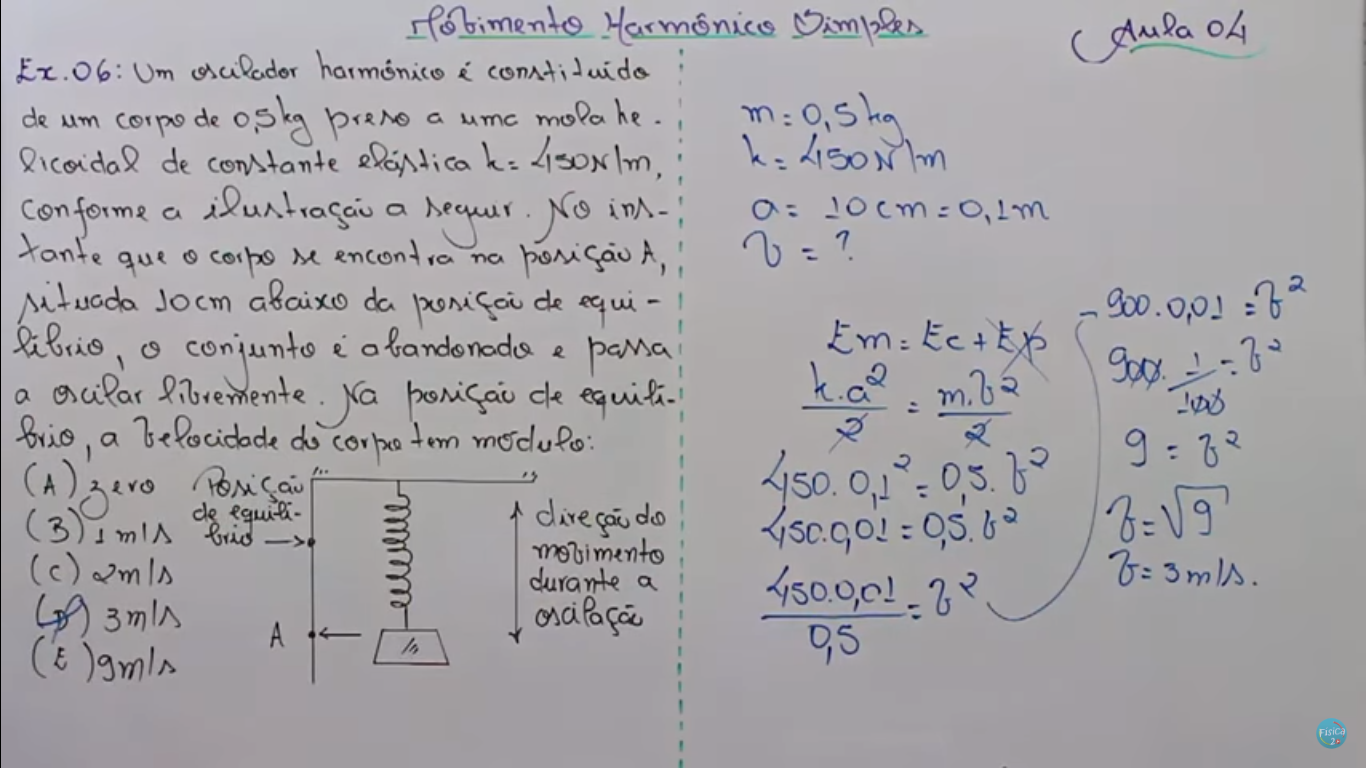 Movimento Harmônico Simples
Aula 04
Ex.06: Um oscilador harmônico é constituído
de um corpo de 0,5kg preso a uma mola he-
licoidal de constante elástica k=450N/m,
conforme a ilustração a seguir. No ins-
tante que o corpo se encontra na posição A,
situada 10cm abaixo da posição de equi-
líbrio, o conjunto é abandonado e passa
a oscilar libremente. Na posição de equilí-
brio, a velocidade do corpo tem módulo:
(A) zero
(B) 1m/s
(C) 2m/s
(D) 3m/s
(E) 9m/s
Posição
de equilí-
brio
A
direção do
movimento
durante a
oscilação
m=0,5kg
k=450N/m
a= 10cm=0,1m
v=?
Em=Ec+Ep
k.a²/2 = m.v²/2
450.0,1²=0,5.v²
450.0,01=0,5.v²
450.0,01/0,5=v²
900.0,01=v²
900.1/100=v²
9=v²
v=√9
v=3m/s.
Física
2+